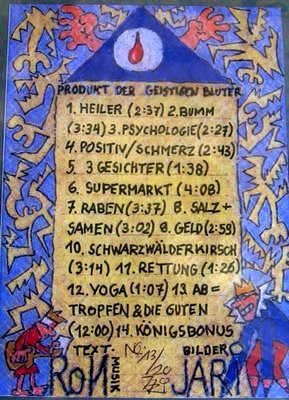 PRODUKT DER GEISTIGEN BLUTER
1. HEILER (2:37) 2.BUMM
(3:34) 3. PSYCHOLOGIE(2:27)
4. POSITIV/SCHMERZ (2:43)
5. 3 GESICHTER (1:38)
6. SUPERMARKT (4:08)
7. RABEN (3:37) 8. SALZ+
SAMEN (3:02) 9. GELD(2:59)
10. SCHWARZWÄLDERKIRSCH
(3:14) 11. RETTUNG (1:26)
12. YOGA (1:07) 13. AB=
TROPFEN & DIE GUTEN
(12:00) 14. KÖNIGSBONUS
TEXT. MUSIK No: 13/20 BILDER
RON JARI